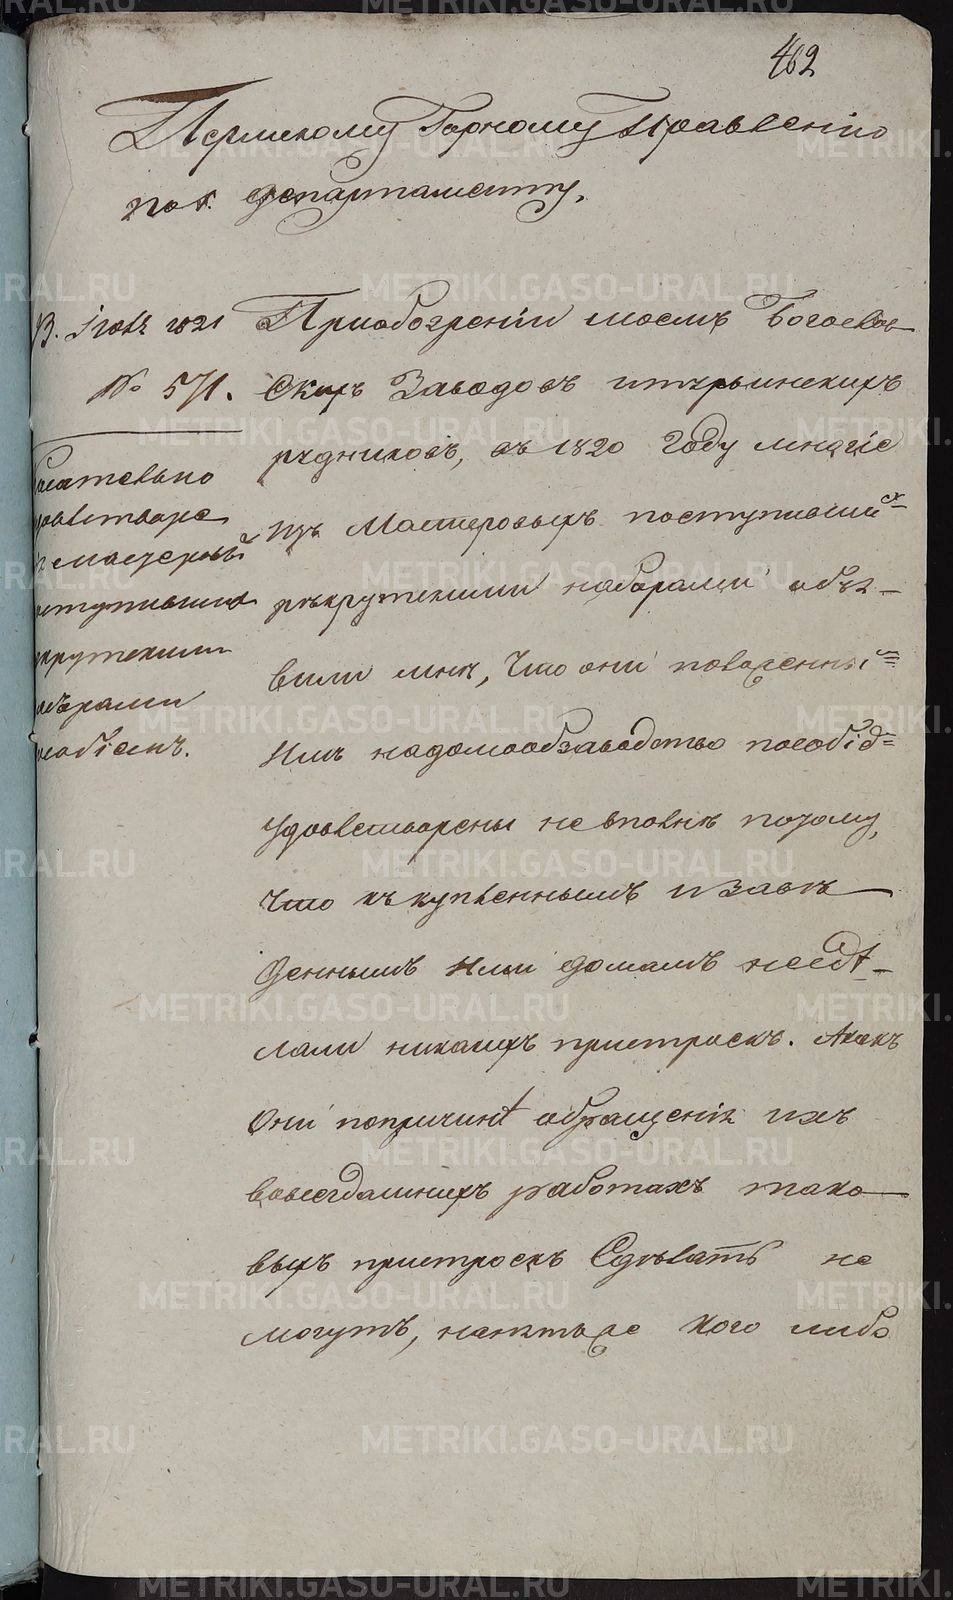 462
Пермскому Горному Правленію
по 1. департаменту.
13. Іюля 1821
№ 571.
Касательно
удовлетворе
мастеровы
поступивших
рекрутскими
наборами
пособіемъ.
При обозреніи моемъ Богослов
скихъ Заводовъ и турьинскихъ
рудниковъ, въ 1820 году многіе
изъ Мастеровыхъ поступивших
рекрутскими наборами объя-
вили мнѣ, что они поверенны
имъ на домообзаводство пособіе=
удовлетворены не вполнѣ потому,
что къ купленнымъ и заве
деннымъ ими домамъ не сдѣ-
лали никакихъ пристроекъ. А какъ
они по причинѣ обращенія ихъ
во всегдашнихъ работахъ тако
выхъ пристроекъ сделать не
могутъ, нанять же кого либо
METRIKI.GASO-URAL.RU